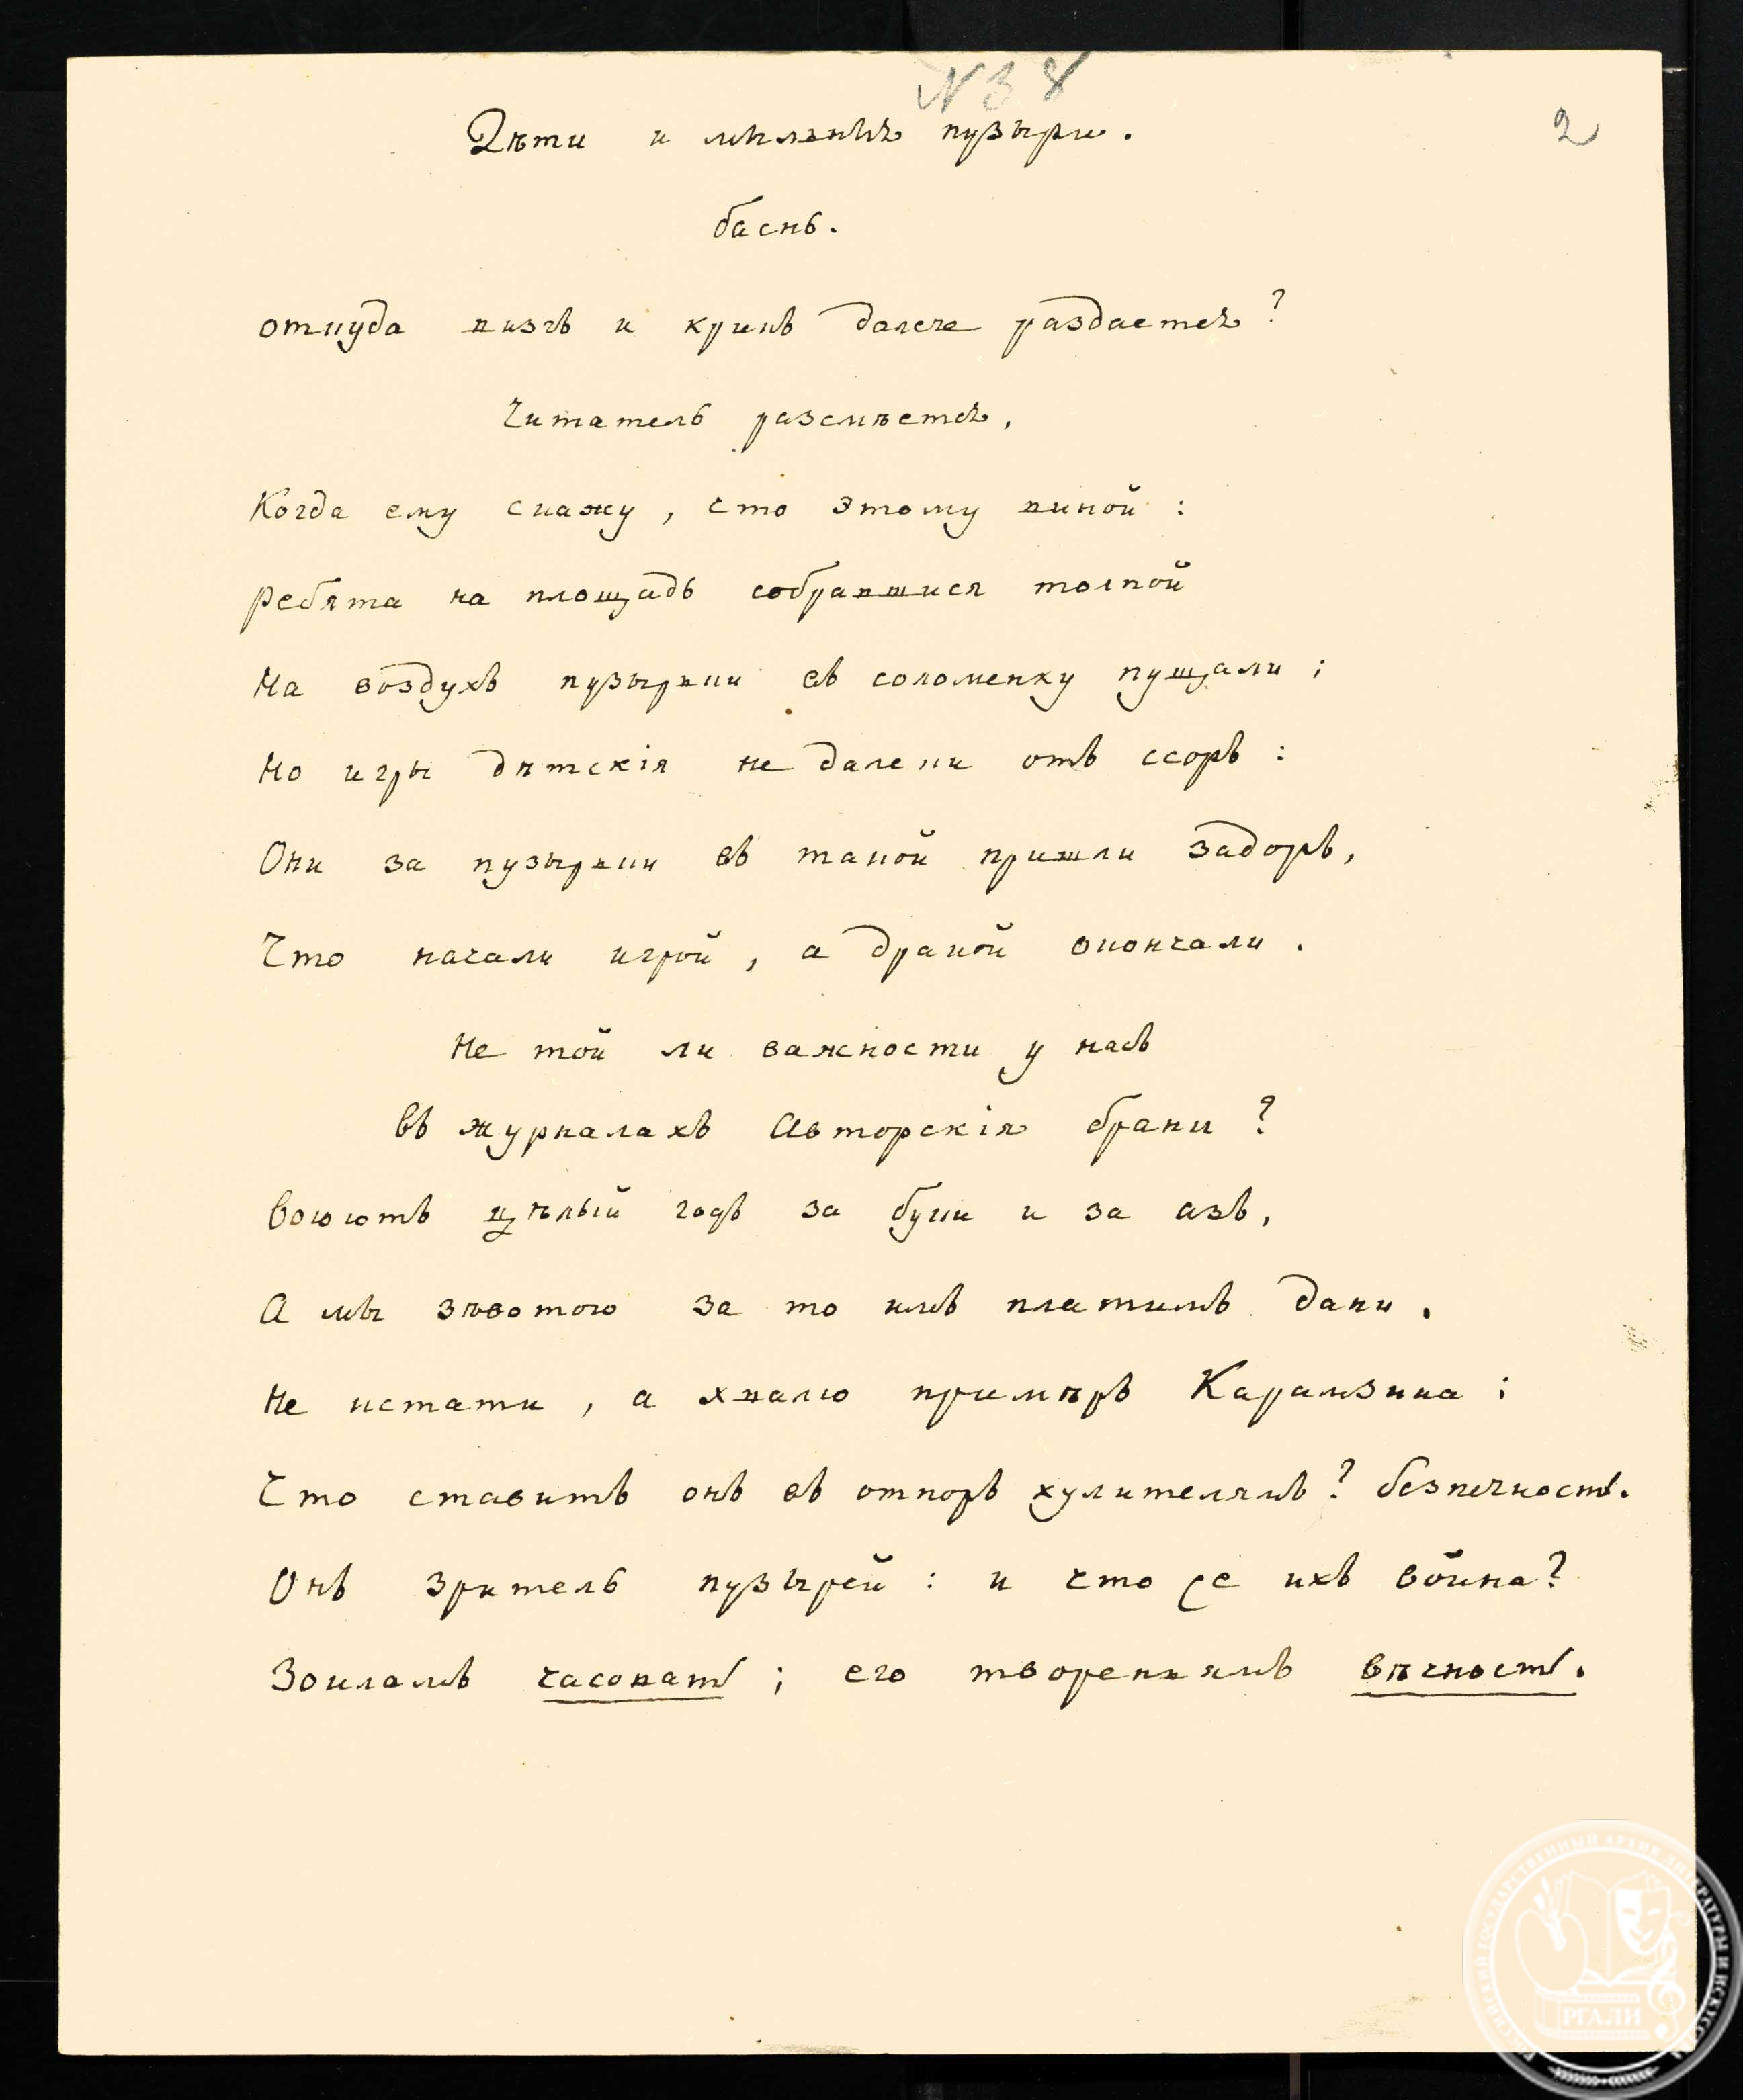 N 38
2
Дѣти и мыльные пузыри.
баснь.
откуда визгъ и крикъ далече раздается?
Читатель разсмѣется,
Когда ему скажу, что этому виной:
ребята на площадь собравшися толпой
На воздухъ пузырьки въ соломенку пущали;
Но игры дѣтскія не далеки отъ ссоръ:
Они за пузырьки въ такой пришли задоръ,
Что начали игрой, а дракой окончали.
Не той ли важности у насъ
Въ журналахъ Авторскія брани?
Воюютъ цѣлый годъ за буки и за азъ,
А мы зѣвотою за то имъ платимъ дани.
Не кстати, а хвалю примѣръ Карамзина:
Что ставитъ онъ въ отпоръ хулителямъ? безпечность.
Онъ зритель пузырей: и что се ихъ война?
Зоиламъ часовать; его твореньямъ вѣчность.
РОССИЙСКИЙ ГОСУДАРСТВЕННЫЙ АРХИВ ЛИТЕРАТУРЫ И ИСКУССТВА
РГАЛИ